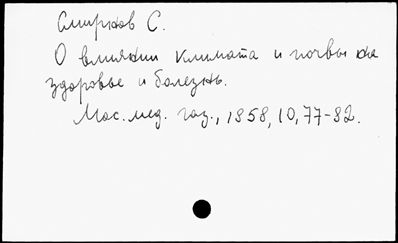 Смирнов С.
О влиянии климата и почвы на
здоровье и болезнь.
Мос. мед. газ., 1858, 10, 77-82.